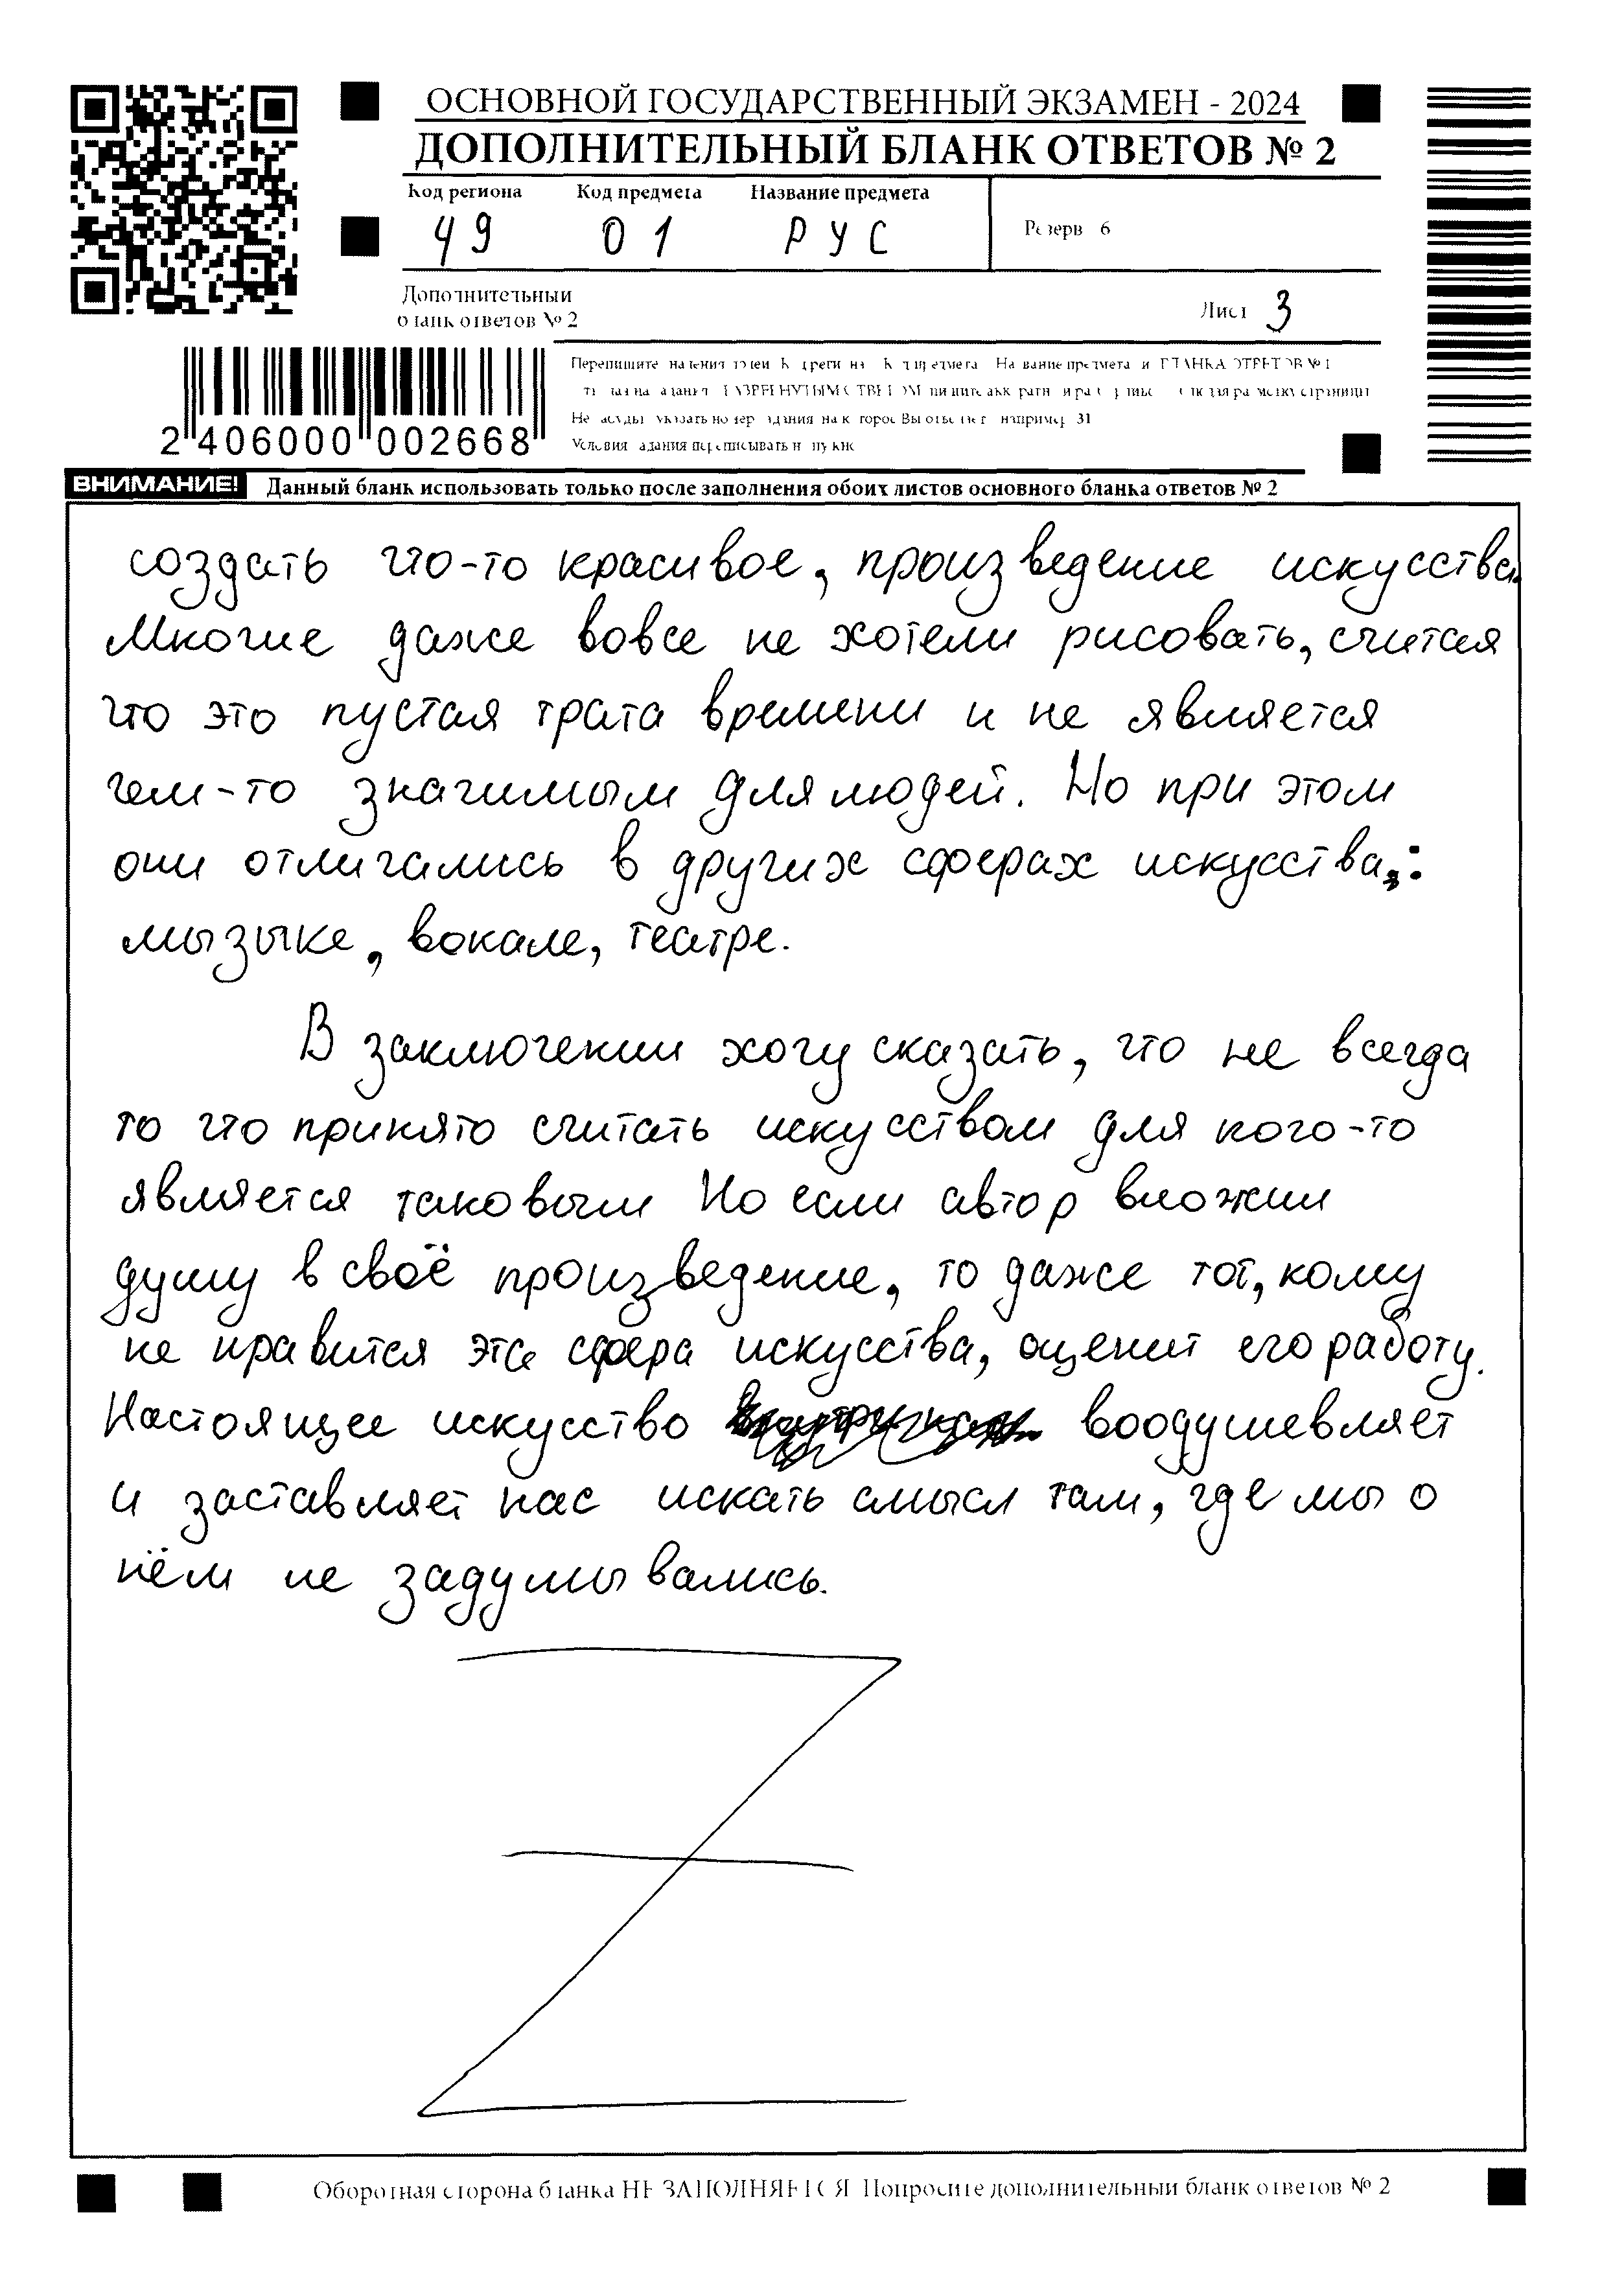 ОСНОВНОЙ ГОСУДАРСТВЕННЫЙ ЭКЗАМЕН - 2024
ДОПОЛНИТЕЛЬНЫЙ БЛАНК ОТВЕТОВ № 2
Код региона Код предмета Название предмета
49 01 РУС
Резерв 6
Дополнительный
бланк ответов № 2
Лист 3
2 406000 002668
ВНИМАНИЕ! Данный бланк использовать только после заполнения обоих листов основного бланка ответов № 2
создать что-то красивое, произведение искусства.
Многие даже вовсе не хотели рисовать, считая
что это пустая трата времени и не является
чем-то значимым для людей. Но при этом
они отличались в других сферах искусства:
музыке, вокале, театре.
В заключении хочу сказать, что не всегда
то что принято считать искусством для кого-то
является таковым Но если автор вложил
душу в своё произведение, то даже тот, кому
не нравится эта сфера искусства, оценит его работу.
Настоящее искусство воодушевляет
и заставляет нас искать смысл там, где мы о
нём не задумывались.
Оборотная сторона бланка НЕ ЗАПОЛНЯЕТСЯ Попросите дополнительный бланк ответов № 2